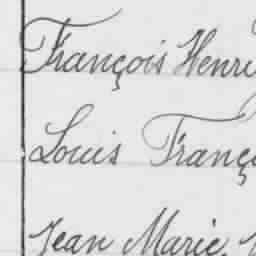 François Henri
Louis Franço
Jean Marie,